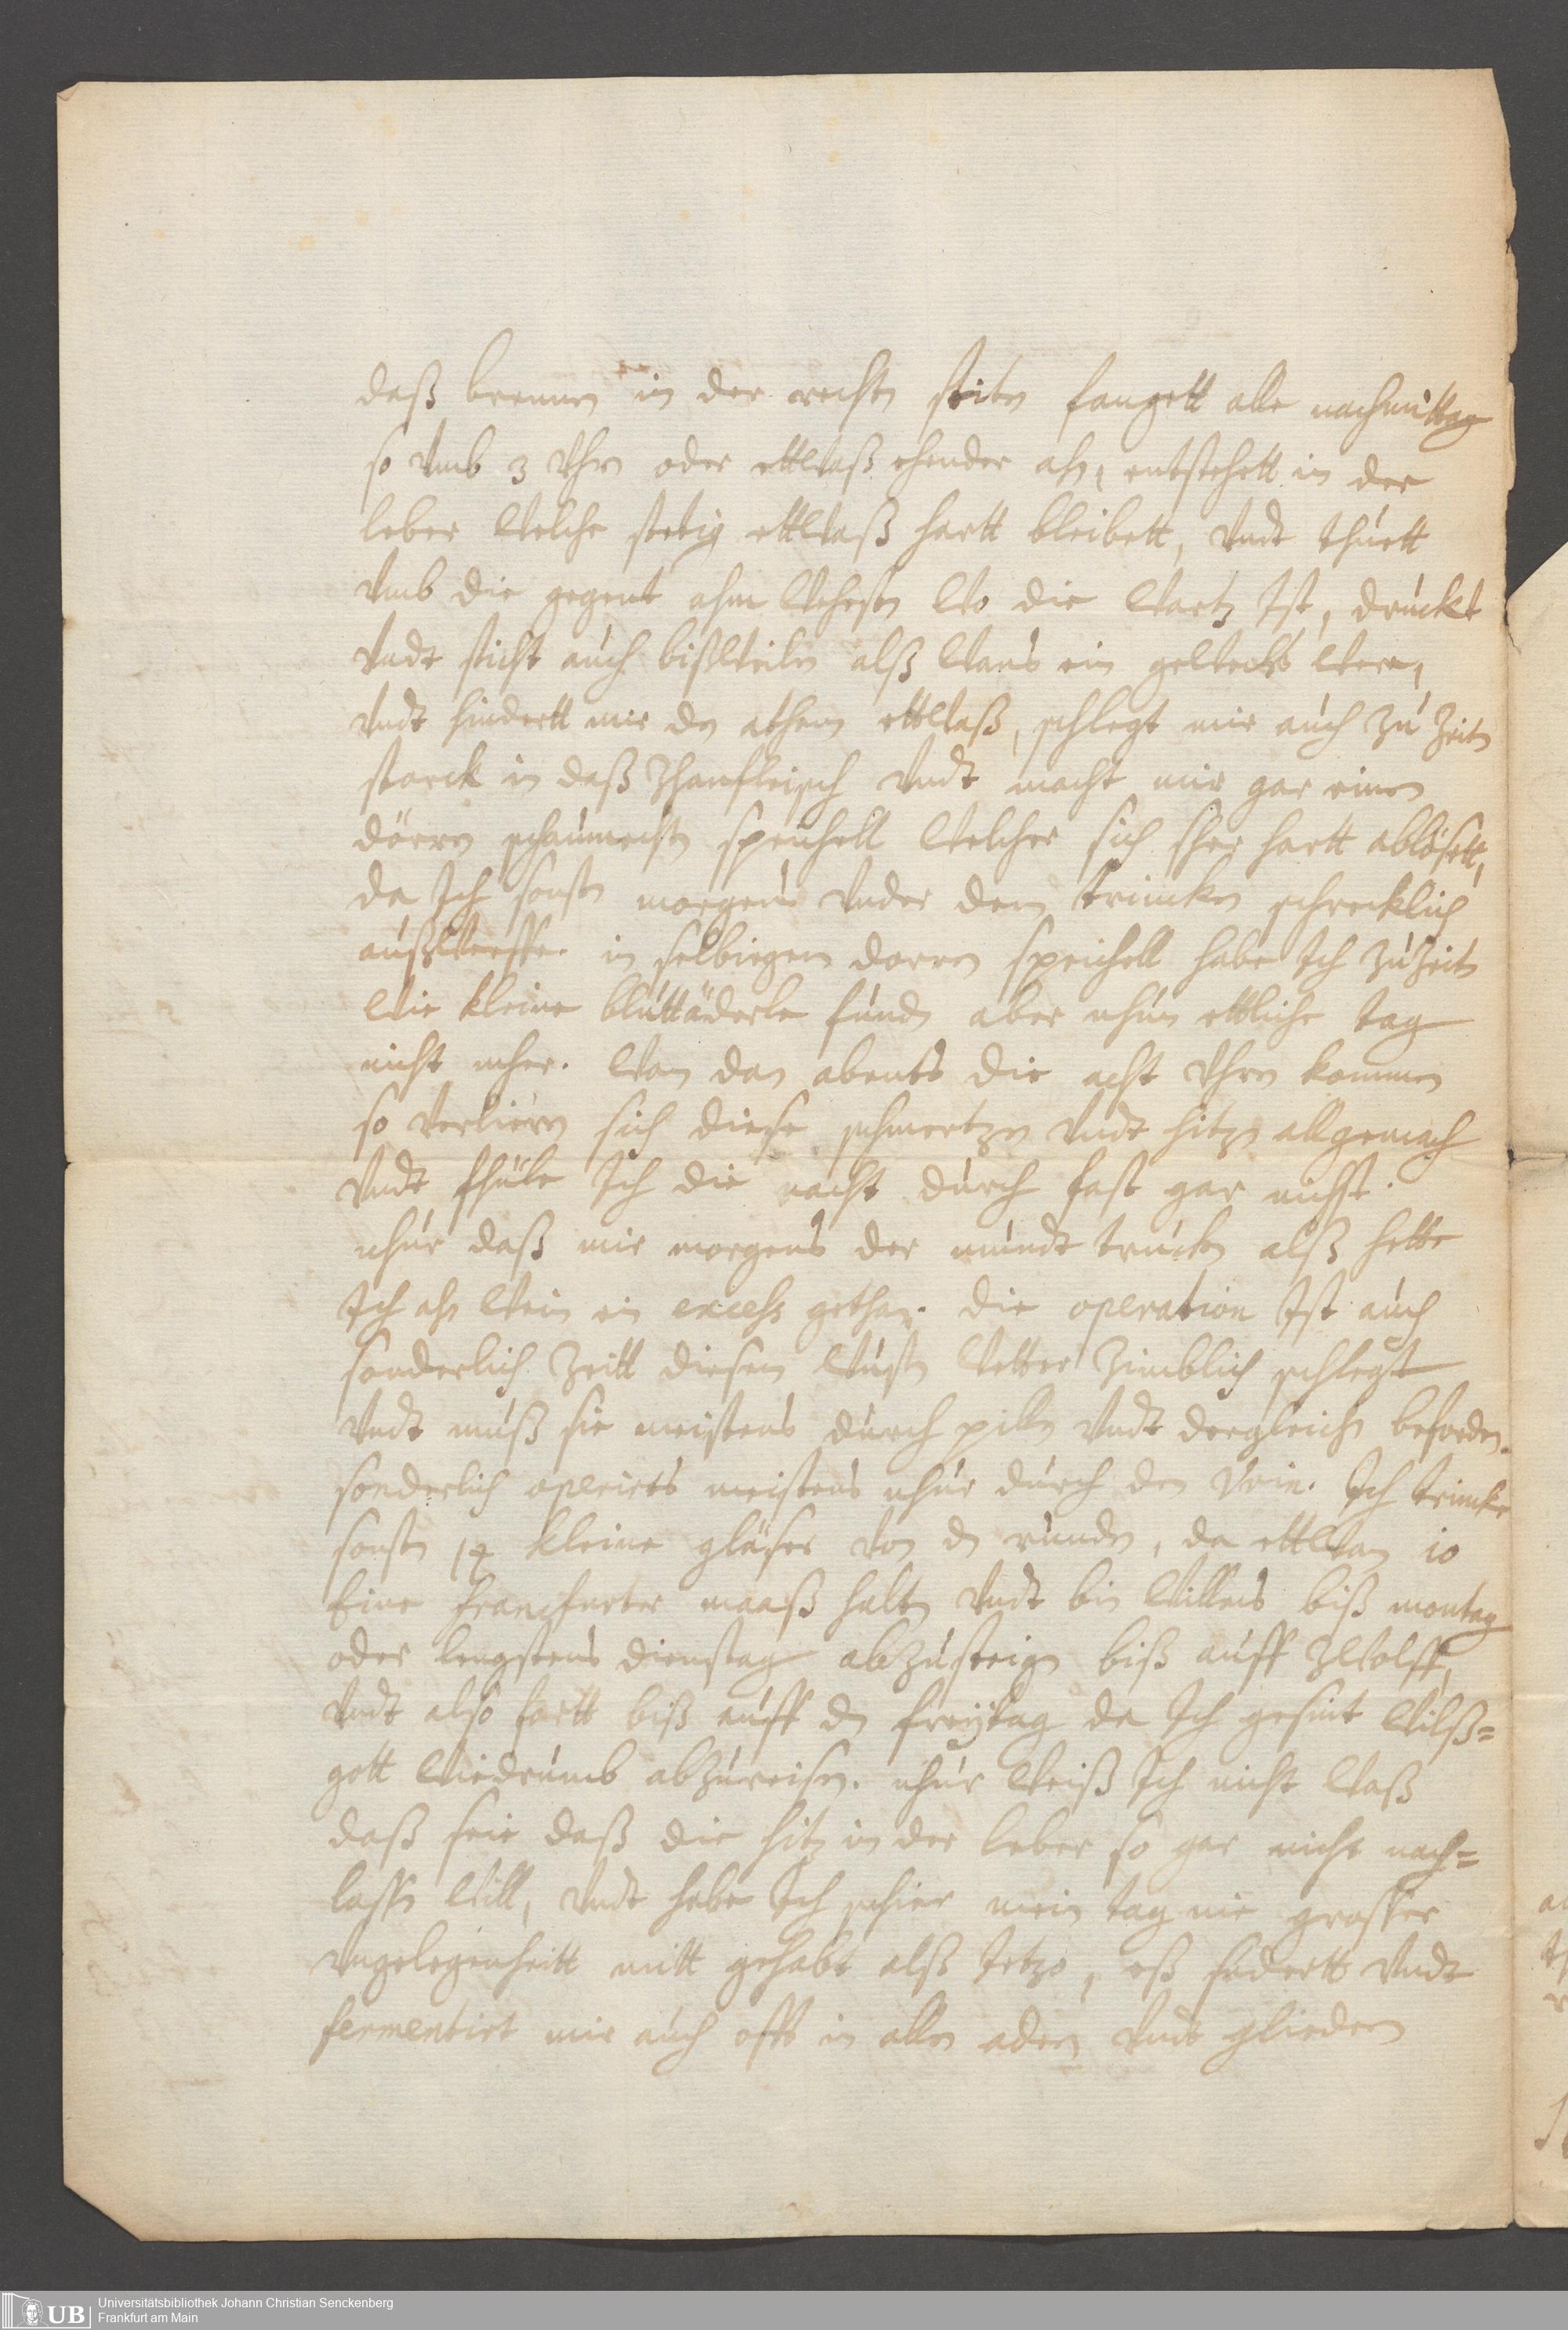 daß brennen in der rechten seiten fangett alle nachmittag
so vmb 3 Vhrn oder ettwaß ehender ahn, entstehett in der
leber welche stetig ettwaß hartt bleibett, vndt thuett
vmb die gegent ahm wehesten wo die wartz Ist, druckt
vndt sticht auch bißweilen alß wans ein gewechs were,
vndt hindertt mir den athem ettwaß, schlegt mir auch zu Zeiten
starck in daß Zhanfleisch vndt macht mir gar einen
dörren schaumechten speichell welcher sich sher hartt ablösett,
da Ich sonsten morgens vnder dem trincken schrecklich
außwerffe. in selbiegem dorren speichell habe Ich zu Zeiten
wie kleine bluttäderle funden aber nhun ettliche tag
nicht meher. Wan dan abents die acht Vhrn kommen
so verlieren sich diese schmertzen vndt hitze allgemach
vndt fhüle Ich die nacht durch fast gar nichst.
nhur daß mir morgens der mundt trucken alß hette
Ich ahn wein ein excehs gethan. die operation Ist auch
sonderlich Zeitt diesem wusten wetter Zimblich schlegt
vndt muß sie meistens durch pilen vndt dergleichen beforden.
sonderlich operirts meistens nhur durch den Vrin. Ich trincke
sonsten 14 kleine gläser von den runden, da ettwan 10
Eine francfurter maaß halten vndt bin willens biß montag
oder lengstens dienstag abzusteigen biß auff Zwolff,
vndt also fortt biß auff den freÿtag da Ich gesint wilß=
gott wiedrumb abzureisen. nhur weiß Ich nicht waß
daß seie daß die hitz in der leber so gar nicht nach=
lassen will, vndt habe Ich schier mein tag nie grosser
vngelegenheitt mitt gehabt alß Jetzo, eß fudertt vndt
fermentirt mir auch offt in allen adern vndt gliedern
Universitätsbibliothek Johann Christian Senckenberg
Frankfurt am Main
UB